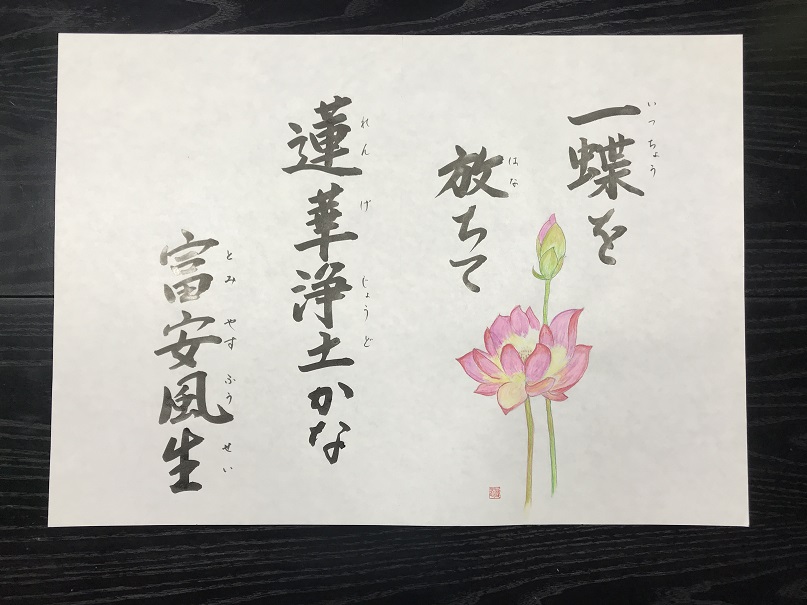 一蝶を
いっちょう
放ちて
はな
蓮華浄土かな
れんげじょうど
富安風生
とみやすふうせい